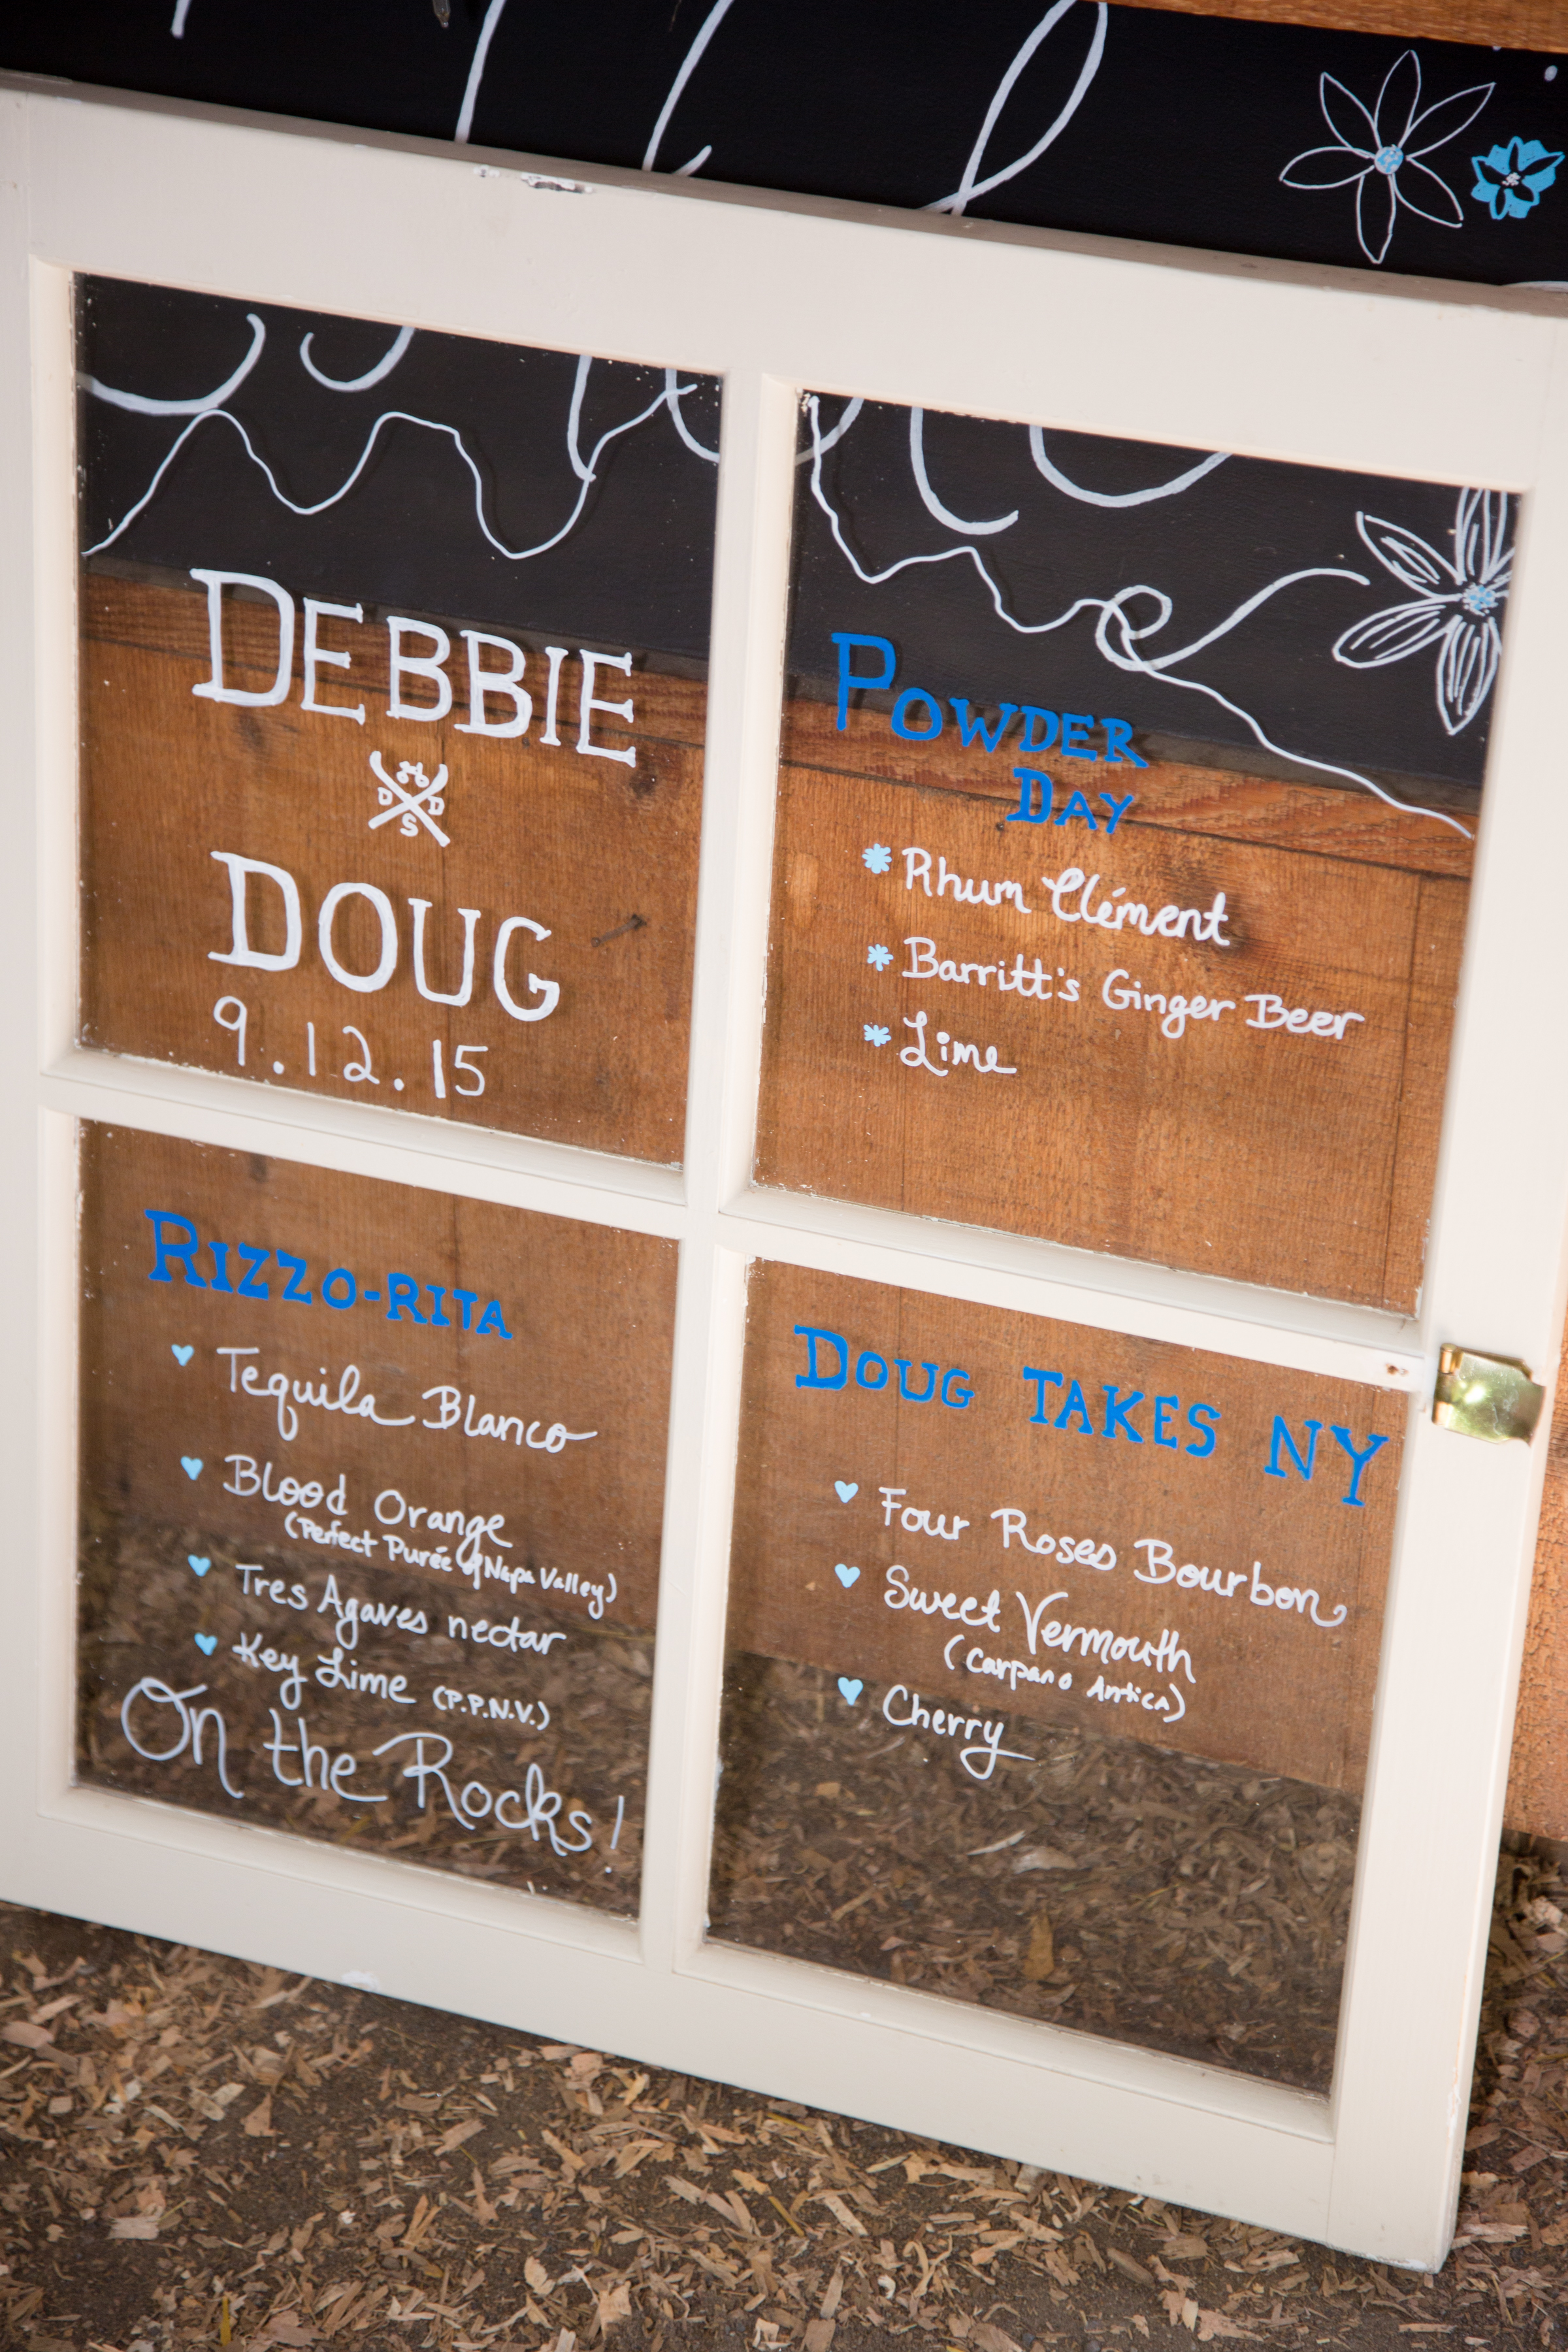 DEBBIE
D D
S
DOUG
9.12.15
POWDER
DAY
Rhum Clément
Barritt's Ginger Beer
Lime
RIZZO-RITA
Tequila Blanco
Blood Orange
(Perfect Purée of Napa Valley)
Tres Agaves nectar
Key Lime (P.P.N.V.)
On the Rocks!
DOUG TAKES NY
Four Roses Bourbon
Sweet Vermouth
(Carpano Antica)
Cherry